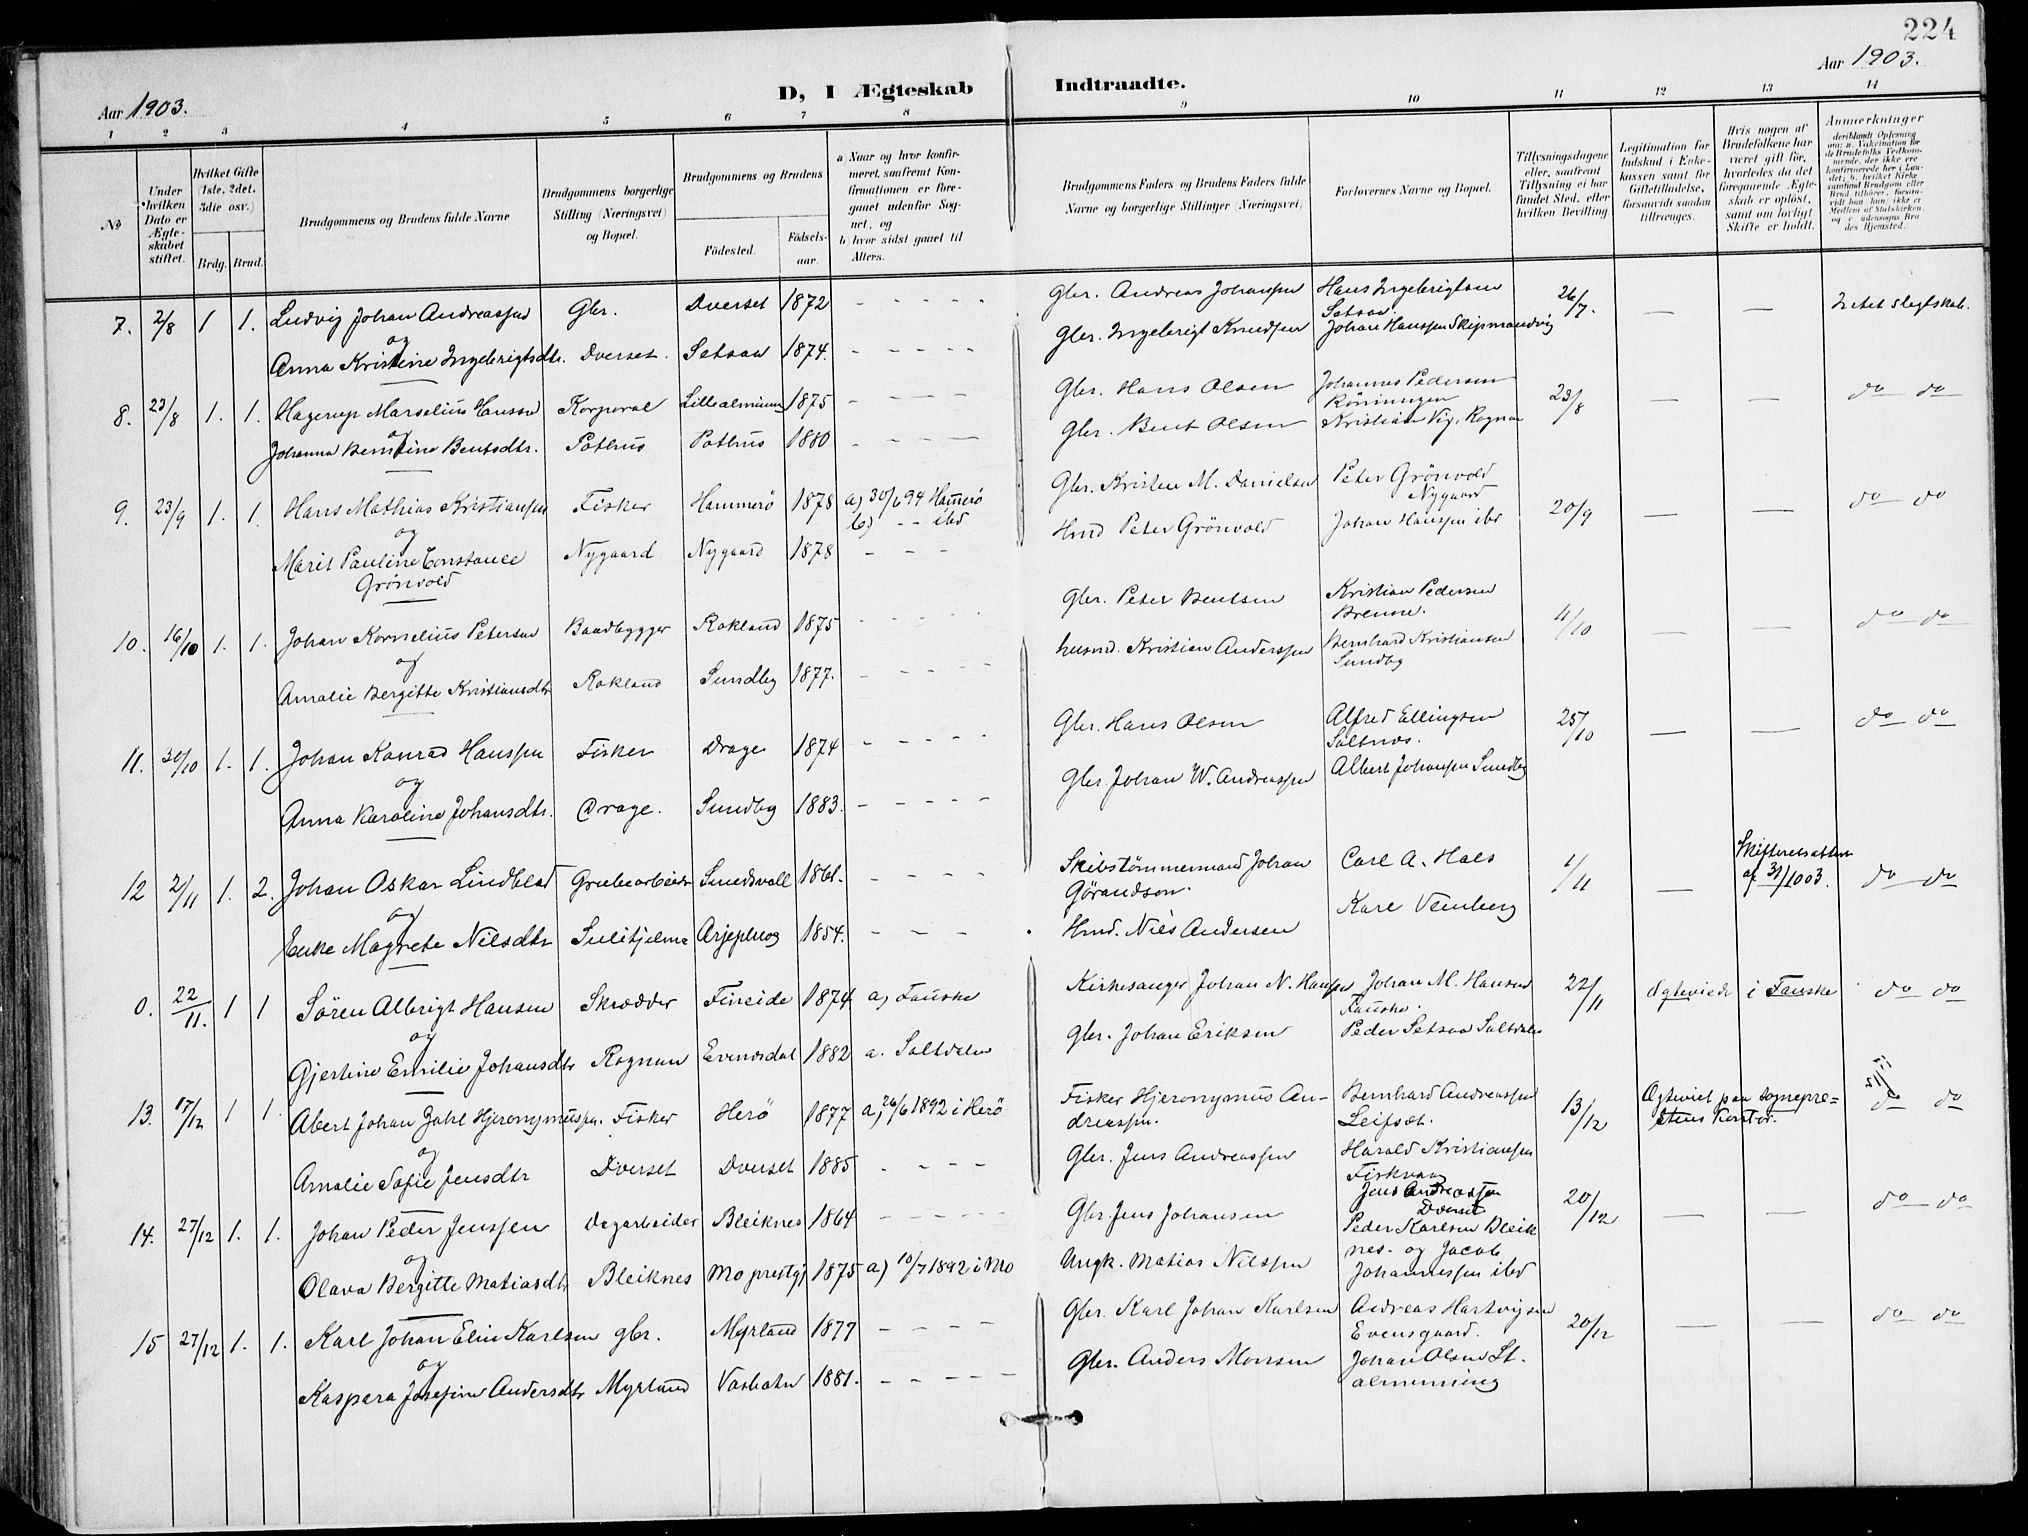 224
Aar 1903.
D, I Ægteskab Indtraadte.
Aar 1903.
1 2 3 4 5 6 7 8 9 10 11 12 13 14
No
Under hvilken Dato er Ægteskabet stiftet.
Hvilket Gifte (1ste, 2det, 3die osv.)
Brdg. Brud.
Brudgommens og Brudens fulde Navne
Brudgommens borgerlige Stilling (Næringsvei) og Bopæl.
Brudgommens og Brudens
Födested. Födsels-aar.
a Naar og hvor konfirmeret, saafremt Konfirmationen er foregaaet udenfor Sognet, og
b) hvor sidst gaaet til Alters.
Brudgommens Faders og Brudens Faders fulde Navne og borgerlige Stillinger (Næringsvei)
Forlovernes Navne og Bopæl.
Tillysningsdagene eller, saafremt Tillysning ei har fundet Sted, efter hvilken Bevilling.
Legitimation for Indskud i Enkekassen samt for Giftetilladelse, forsaavidt saadan tiltrænges.
Hvis nogen af Brudefolkene har været gift för, hvorledes da det foregaaende Ægteskab er oplöst, samt om lovligt Skifte er holdt.
Anmærkninger
7. 2/8 1 1. Ludvig Johan Andreassen Gbr. Dverset 1872 - - - - - Gbr. Andreas Johansen Hans Ingebrigtsen Setsaa. 26/7. — — Intet slegtskab.
og
Anna Kristine Ingebrigtsdtr. Dverset. Setsaa 1874. - - - - - Gbr. Ingebrigt Knudsen Johan Hanssen Skipmandvig
8. 23/8 1. 1. Hagerup Marselius Hanssen Korporal 1875 - - - - Gbr. Hans Olsen Johannes Pedersen 23/8 — — do do
og
Johanna Bentine Bentsdtr. Pothus Pothus 1880 - - - - Gbr. Bent Olsen Kristian Vig, Rognan
9. 23/9 1. 1. Hans Mathias Kristiansen Fisker Hammerö 1878 a) 30/6 94 Hamerö Gbr. Kristen M. Danielsen Peter Grönvold Nygaard 20/9 — — do do
b) - - ibd
og
Marit Pauline Constance Grönvold Nygaard Nygaard 1878 - - - Hmd Peter Grönvold Johan Hanssen ibd
10. 16/10 1. 1. Johan Kornelius Petersen Baadbygger Rokland 1875 - - - Gbr. Peter Bentsen Kristian Pedersen Brenne. 11/10 — — do do
og
Amalie Bergitte Kristiansdtr Rokland Sundby 1877. - - - - husmd. Kristian Anderssen Bernhard Kristiansen Sundby
11. 30/10 1. 1. Johan Konrad Hanssen Fisker Drage 1874 - - - - Gbr. Hans Olsen Alfred Ellingsen Saltnes. 25/10 — — do do
og
Anna Karoline Johansdtr. Drage. Sundby 1883. - - - - - Gbr Johan W. Andreassen Albert Johansen Sundby
12 2/11 1. 2. Johan Oskar Lindblad Grubearbeider Sundsvall 1861. - - - - Skibstömmermand Johan Görandson. Carl A. Hals 1/11 — Skifteretsattest af 31/10 03. do do
og
Enke Magrete Nilsdtr Sulitjelma Arjeplog 1854. - - - Hmd. Nils Andersen Karl
0. 22/11. 1 1 Sören Albrigt Hansen Skrædder Fineide 1874 a) Fauske Kirkesanger Johan N. Hansen Johan M. Hansen Fauske 22/11 Ægteviede i Fauske do do
og
Gjertine Emilie Johansdtr Rognan Evensdal 1882 a. Saltdalen Gbr. Johan Eriksen Peder Setsaa Saltdalen
13. 17/12 1 1. Abert Johan Hjeronymussen. Fisker Herö 1877 a) 26/6 1892 i Herö Fisker Hjeronymus Andreassen. Bernhard Andreassen Leifset. 13/12 Ægteviet paa sognepræstens kontor. do do
og
Amalie Sofie Jensdtr Dverset Dverset 1885 - - - - Gbr. Jens Andreassen Harald Kristiansen Fiskvaag
Jens Andreassen Dverset
14. 27/12 1. 1. Johan Peder Jenssen Dagarbeider Bleiknes 1864 - - - - - Gbr. Jens Johansen Peder Karlsen Bleiknes. og Jacob Johannessen ibd 20/12 — — do do
og
Olava Bergitte Matiasdtr Bleiknes Mo prestgj 1875 a) 10/7 1892 i Mo Ungk. Matias Nilssen
15 27/12 1. 1. Karl Johan Elin Karlsen gbr. Myrland 1877 - - - - Gbr. Karl Johan Karlsen Andreas Hartvigsen Evensgaard. 20/12 — — do do
og
Kaspara Josefine Andersdtr Myrland Vasbotn 1881. - - - - - Gbr. Anders Monsen Johan Olsen St. almenning